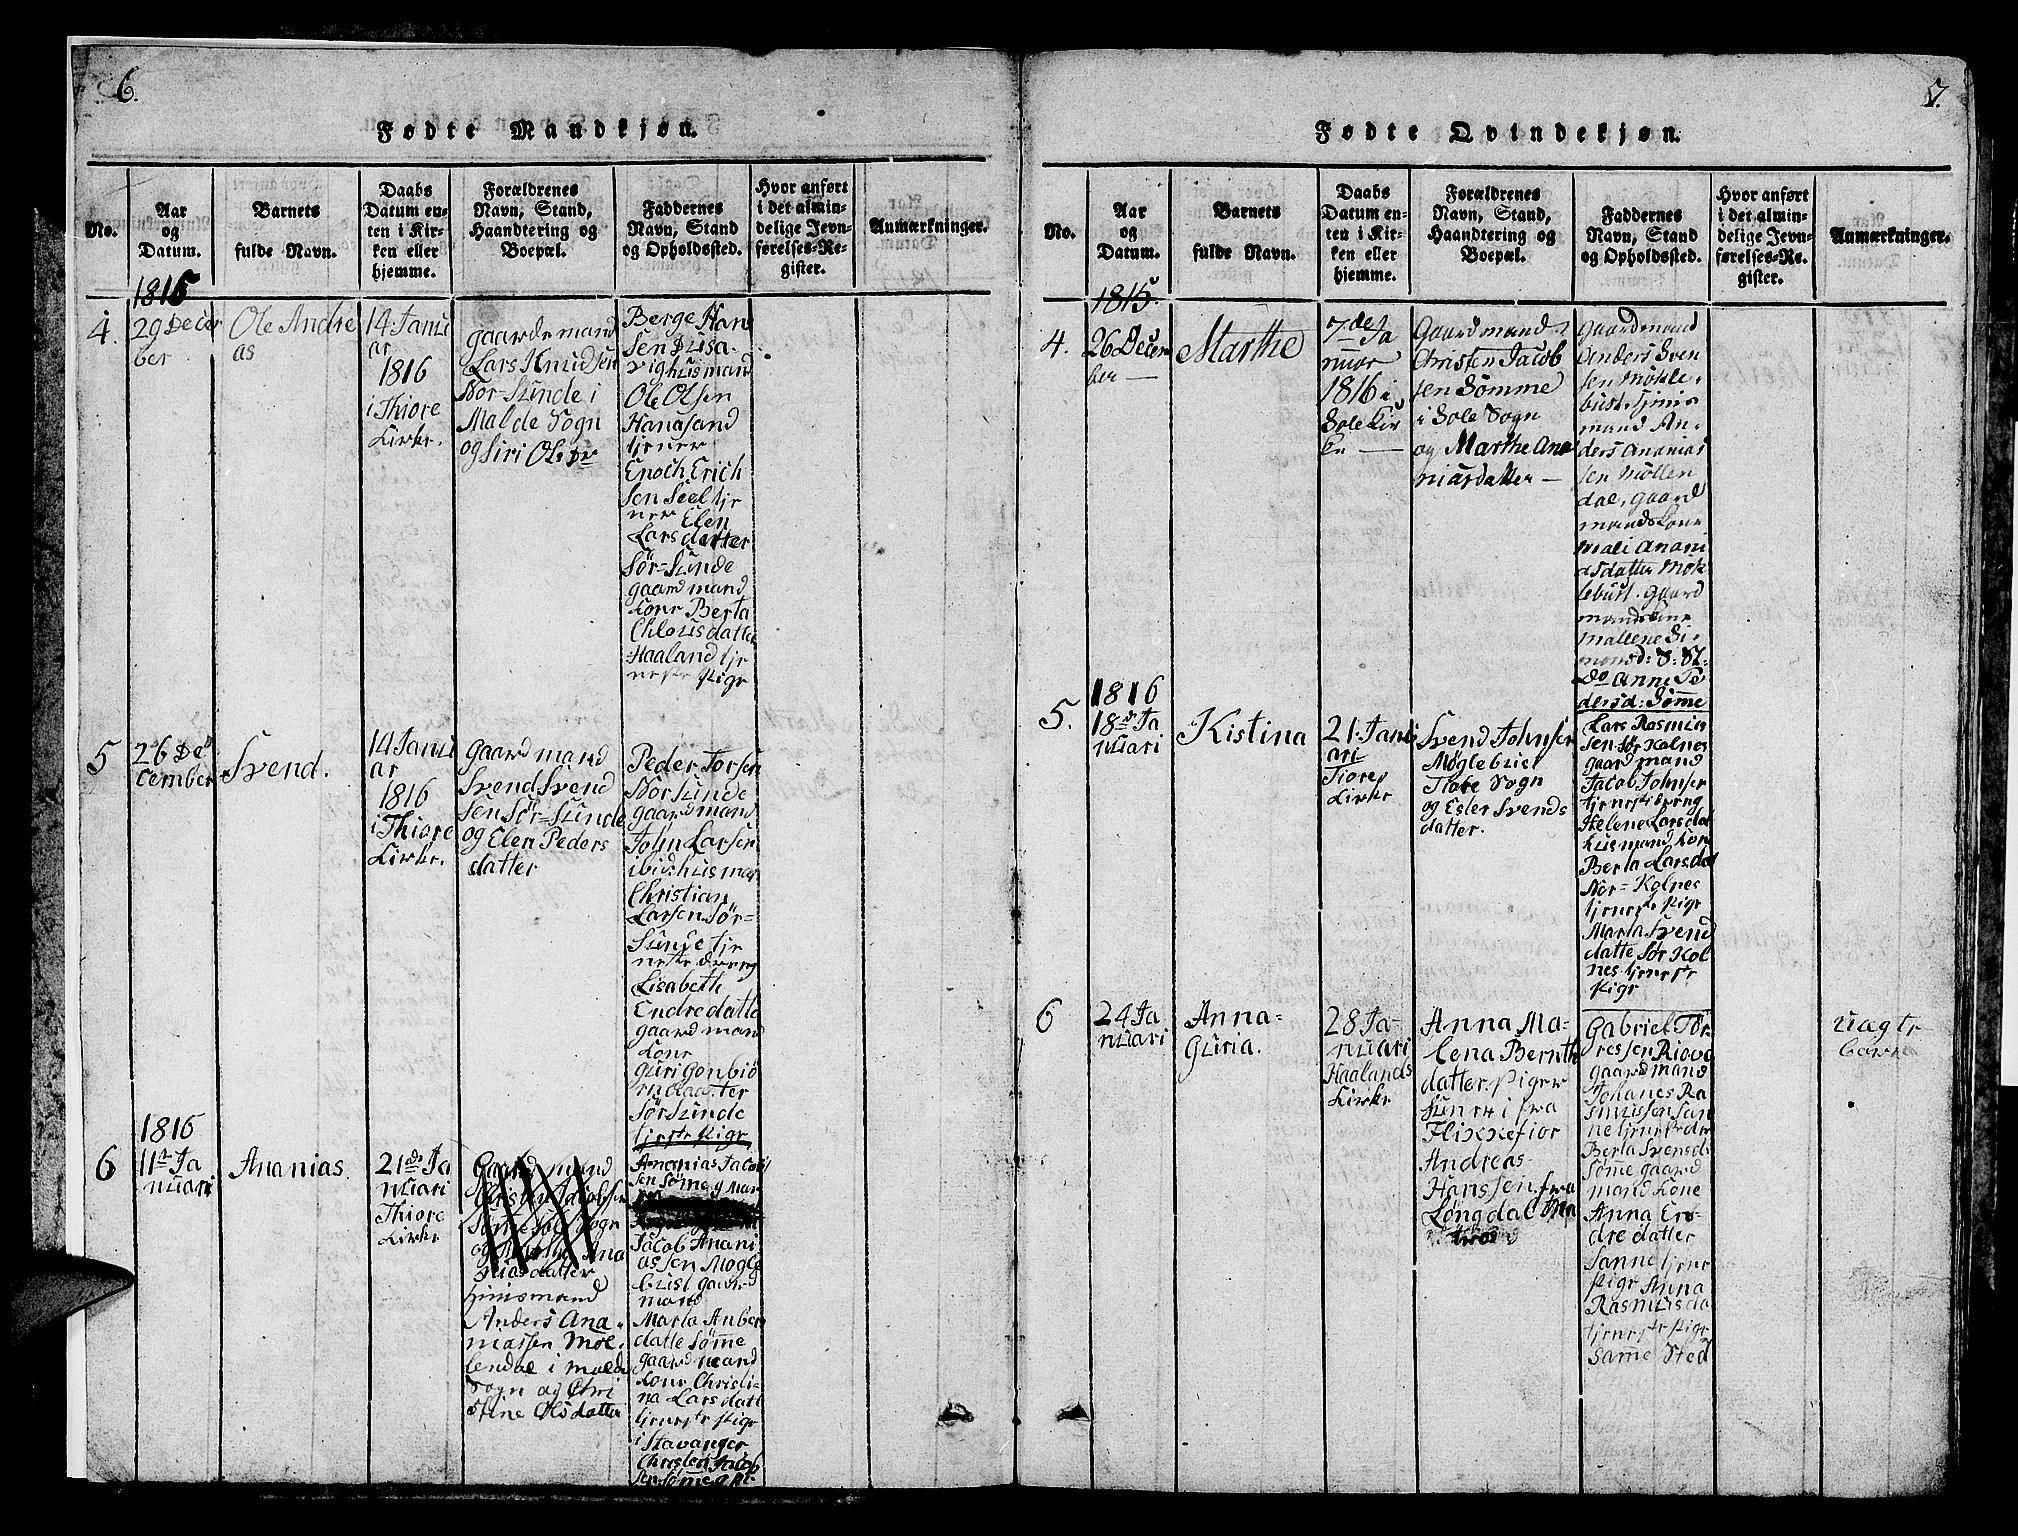 6.
Fødte Mandkjøn.
No.
Aar
og
Datum.
Barnets
fulde Navn.
Daabs
Datum en-
ten i Kir-
ken eller
hjemme.
Forældrenes
Navn, Stand,
Haandtering og
Boepæl.
Faddernes
Navn, Stand
og Opholdssted.
Hvor anført
i det almin-
delige Jevn-
førelses-Re-
gister.
Anmærkninger.
1815
4.
29 Decem
ber
Ole Andre
as
14 Janu
ar
1816
i Thiore
Kirke.
gaardemand
Lars Knudsen
Nor-Sunde i
Malde Sogn
og Siri Olsdr
Berge Han
sen Dusa
vig husmand
Ole Olsen
Hanasand
tjener
Enoch Erich
sen Seel tje
ner Elen
Larsdatter
Sør-Sunde
gaardmand
kone Berta
datter
Haaland tje
neste Pige
5
26 De
cember
Svend.
14 Janu
ar
1816
i Thiore
Kirke.
gaardmand
Svend Svend
sen Sør-Sunde
og Elen Peders
datter
Peder Torsen
Nor Sunde
gaardmand
John Larsen
ibid: husman
Christian
Larsen Sør-
Sunde tje
neste dreng
Lisabeth
Endredatte
gaardmand
kone
guri gonbiø
rnsdaatter
Sør Sunde
tjeneste Pige
1816
6
11te Ja
nuari
Ananias.
21de Ja
nuari
Thiore
Kirke
Gaardmand
Christen Jacobsen
Sømme Sole Sogn
og Marthe Ana
niasdatter
huusmand
Anders Ana-
niassen Møl-
lendal i Malde
Sogn og Chri
stine Olsdatter
Ananias Jacob
sen Sømme g Man
Jacob Anani
assen Møgle
bust gaard-
mand
Marta
datte Sømme
gaardmand
kone Christi-
na Larsdatt
tjeneste Pige
i Stavanger
Christen Jacob
sen Sømme
7.
Fødte Qvindekjøn.
No.
Aar
og
Datum.
Barnets
fulde Navn.
Daabs
Datum en-
ten i Kir-
ken eller
hjemme.
Forældrenes
Navn, Stand,
Haandtering og
Boepæl.
Faddernes
Navn, Stand
og Opholdssted.
Hvor anført
i det almin-
delige Jevn-
førelses-Re-
gister.
Anmærkninger.
1815.
4.
26 Decem
ber
Marthe
7de Ja
nuar
1816 i
Sole Kir
ke
Gaardmand
Christen Jacob
sen Sømme
i Sole Sogn
og Marthe Ana
niasdatter
gaardmand
Anders Sven
sen Møkle-
bust
mand An-
ders Ananias
sen Møllen
dal, gaard
mands kone
Mali Anani
asdatter Møk
lebust. gaard
mands kone
Mallene Si-
monsd: S: St:
Do Anne Pe
dersd: Sømme
1816
5.
18de Ja
nuari
Kistina
21 Janu
ari
Tiore
Kirke
Svend Johnsen
Møglebust
Tiore Sogn
og Ester Svends
datter.
Lars Rasmus
sen Sør Kolnes
gaardmand
Jacob Johnsen
tjeneste dreng
Helene Larsdat
Husmand kone
Berta Larsdat
Nor-Kolnes
tjeneste Pige
Marta Svend
datte Sør Kol
nes tjeneste
Pige
6
24 Ja
nuari
Anna-
Guria.
28 Ja-
nuari
Haalands
Kirke
Anna Ma-
lena Bernth
datter. Piger
fra
Flekkefior
Andreas
Hanssen. fra
Løngdal Ma
tros
Gabriel Tør
ressen
gaardmand
Johanes Ra
smussen San
ne tjeneste dr
Berta Svensd
Sømme gaard
mand kone
Anna En-
dredatter
Sanne tjene
Pige Anna
Rasmusda
tjeneste Pige
samme Sted
uægte
barn